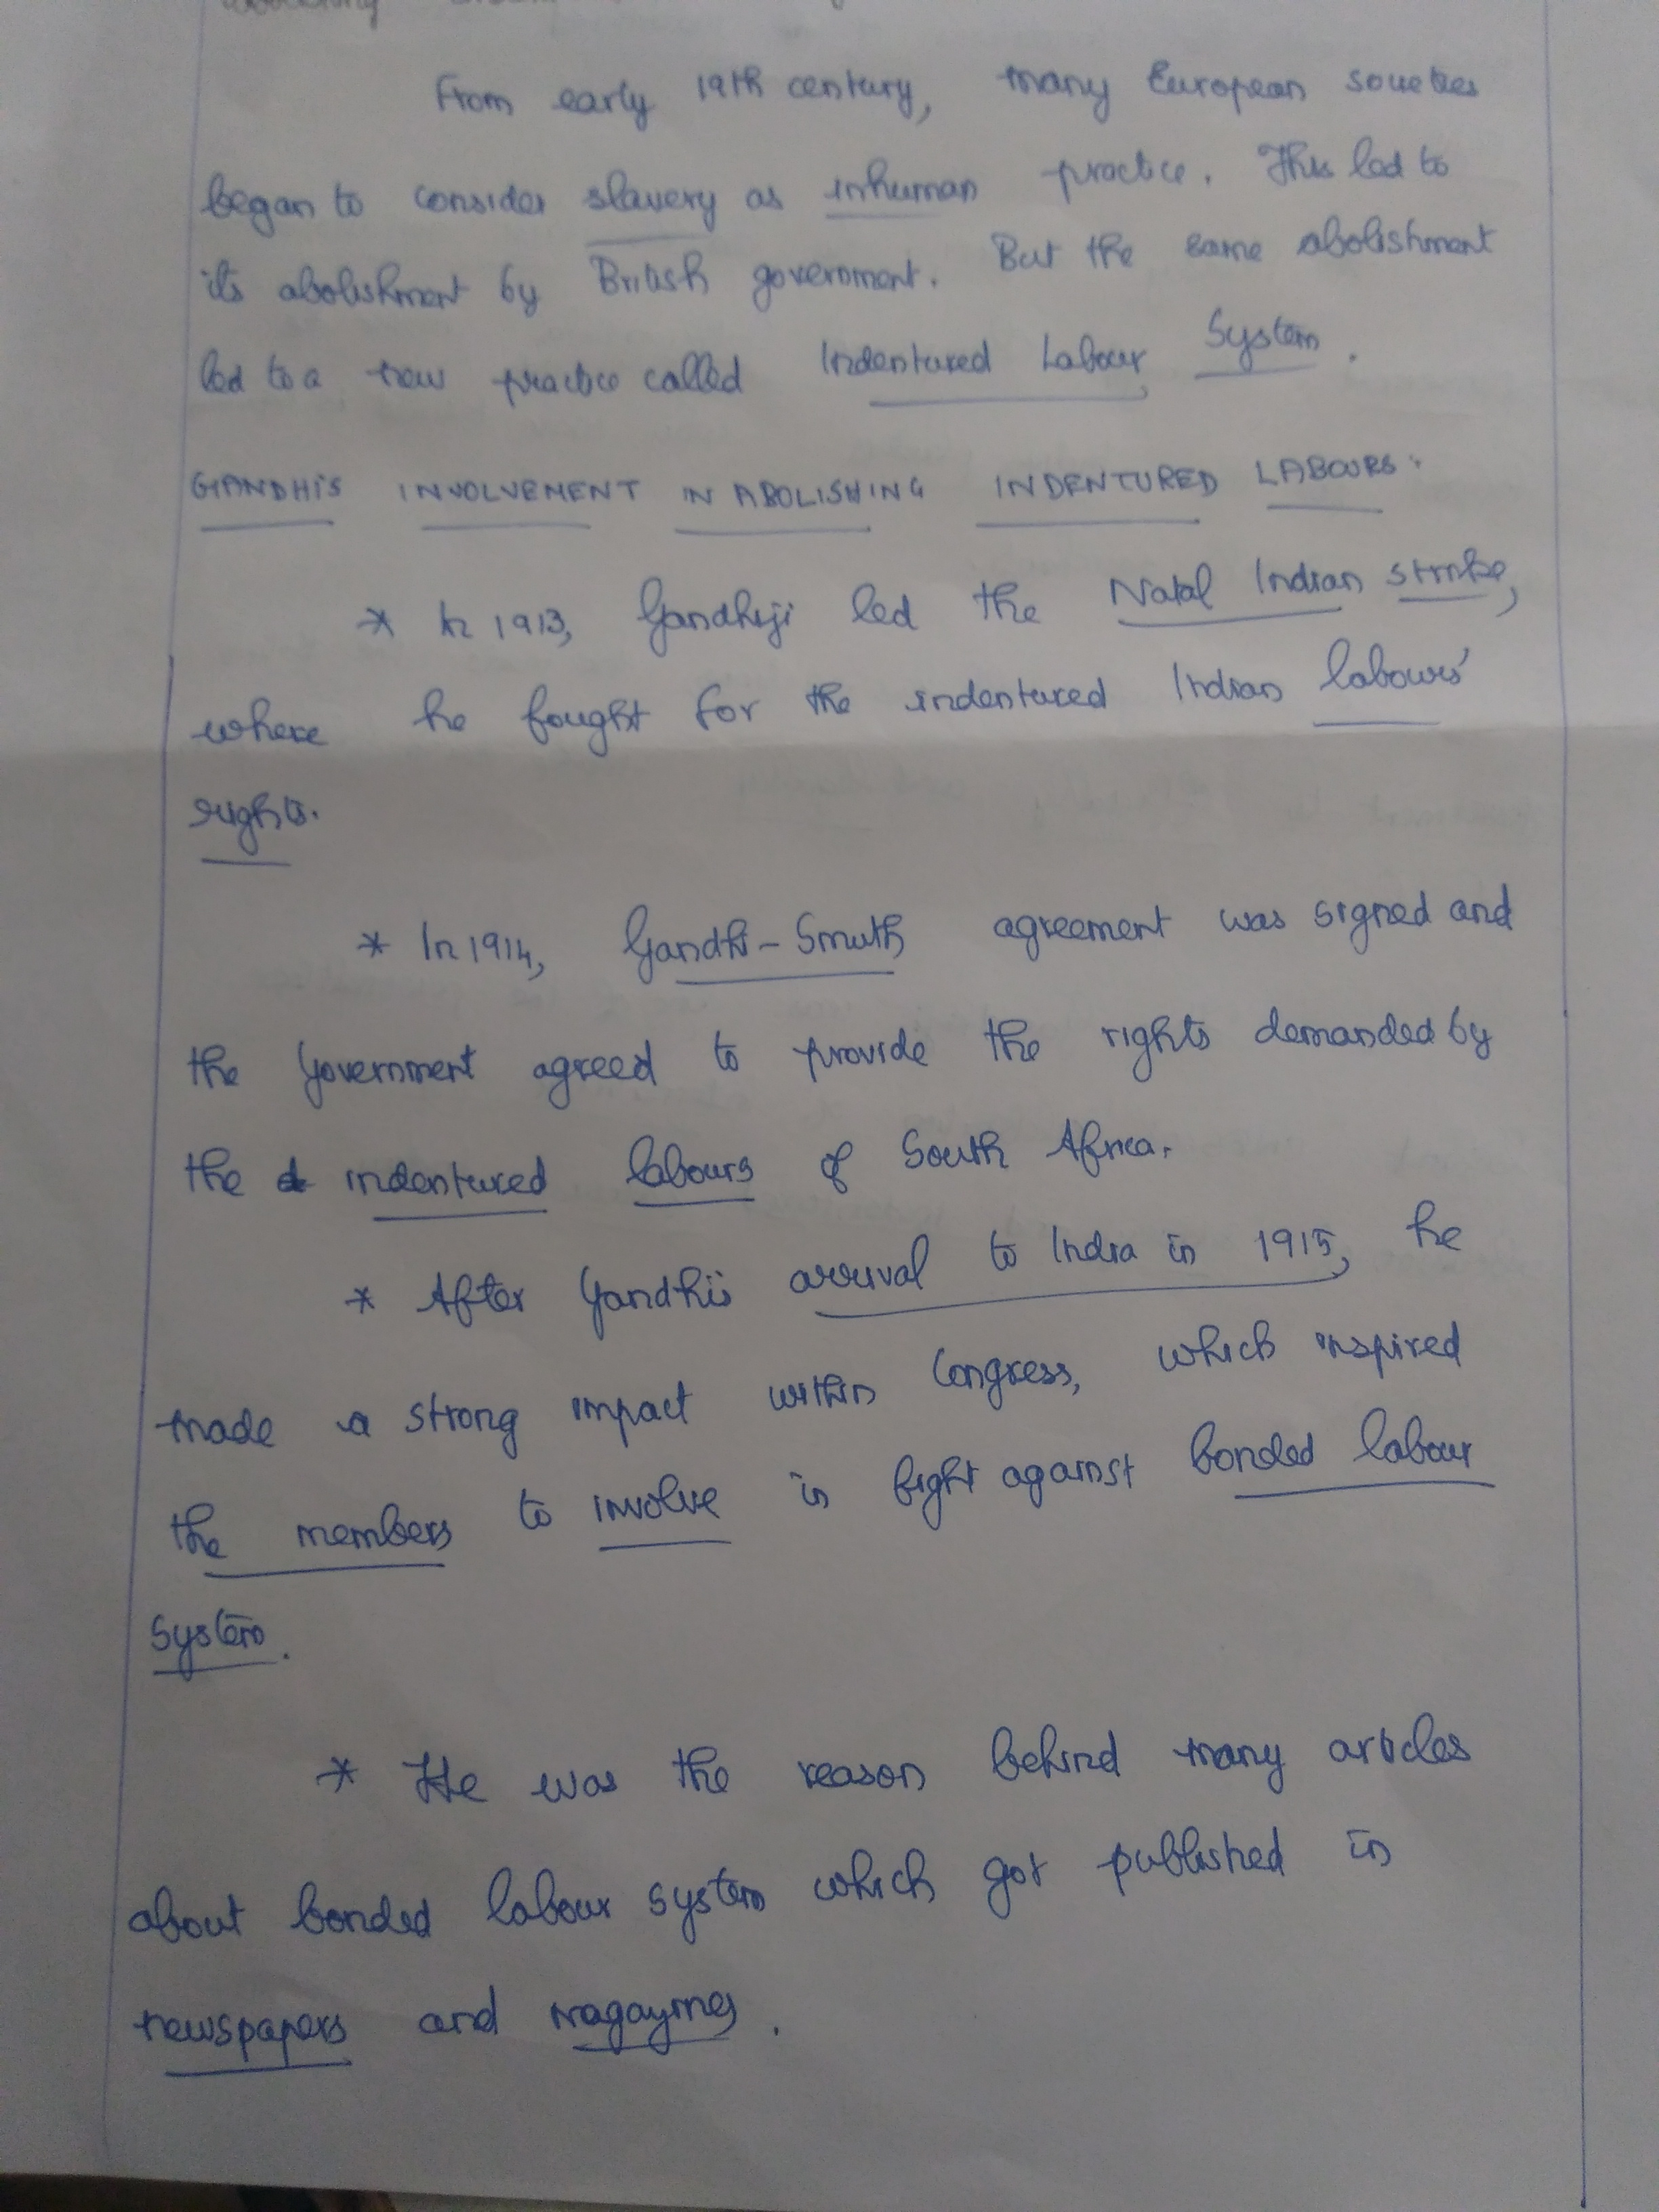 From early 19th century, many European societies
began to consider slavery as inhuman practice. This led to
its abolishment by British government. But the same abolishment
led to a new practice called Indentured Labour System.
GANDHI'S INVOLVEMENT IN ABOLISHING INDENTURED LABOURS:
* In 1913, Gandhiji led the Natal Indian strike,
where he fought for the indentured Indian labours'
rights.
* In 1914, Gandhi-Smuth agreement was signed and
the Government agreed to provide the rights demanded by
the indentured labours of South Africa.
* After Gandhi's arrival to India in 1915, he
made a strong impact within Congress, which inspired
the members to involve in fight against bonded labour
System.
* He was the reason behind many articles
about bonded labour system which got published in
newspapers and magazines.